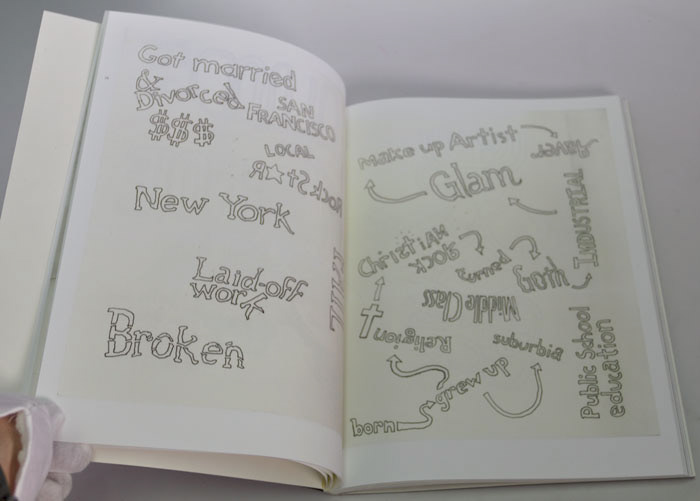 Got married
&
Divorced
SAN
FRANCISCO
$$$
LOCAL
ROCK St☆R
New York
Laid-off
work
Broken
Make up Artist
Glam
INDUSTRIAL
Christian
Rock
turned
Goth
Middle Class
Religion
suburbia
Public School
education
grew up
born